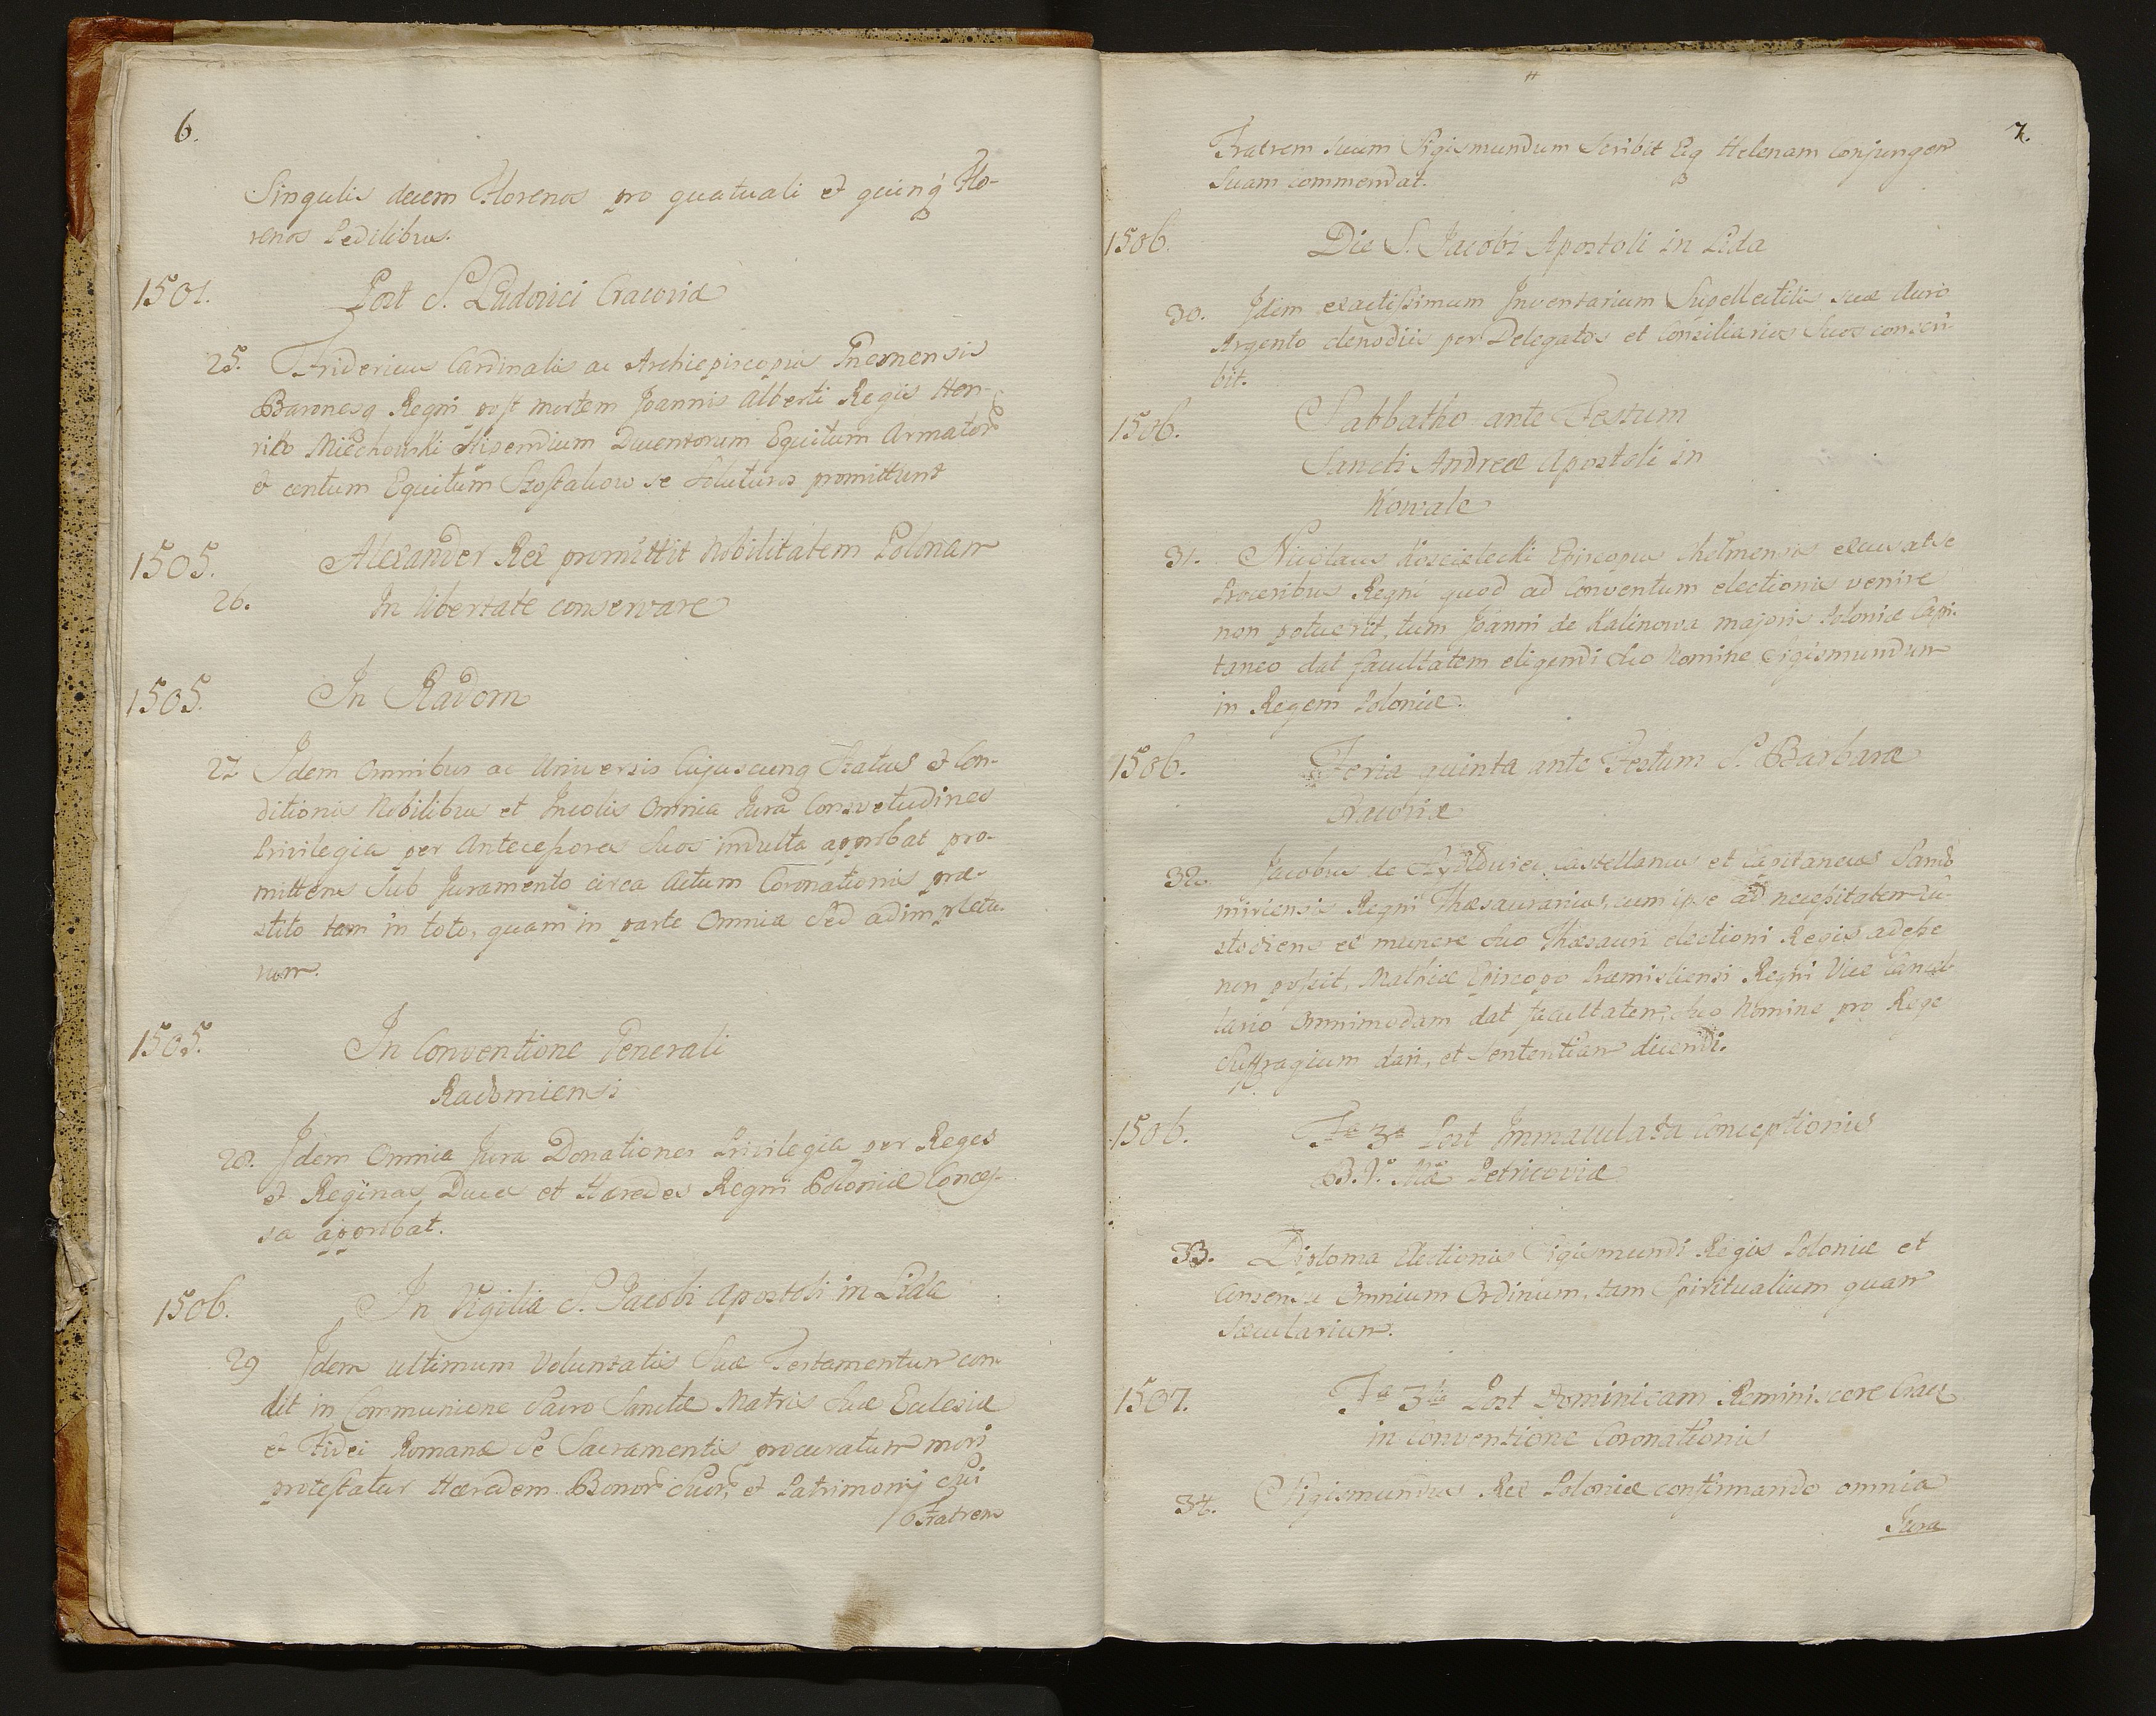 6.
Singulis decem Florenos pro quatuali et quinq Flo-
renos Pedilibus.
1501.
Post S. Ludovici Cracoviæ
25. Fridericus Cardinalis ac Archiepiscopus Gnesnensis
Baronesq Regni post mortem Joannis Alberti Regis Hen-
rico Miechowski Stipendium Ducentorum Equitum Armator
& centum Equitum se soluturos promittunt
1505.
Alexander Rex promittit Nobilitatem Polonam
26. In libertate conservare
1505.
In Radom
27 Idem Omnibus ac Universis Cujuscunq Status et Con-
ditionis Nobilibus et Incolis Omnia Jura Consvetudines
Privilegia per Antecessores Suos indulta approbat pro-
mittens Sub Juramento circa Actum Coronationis præ-
stito tam in toto, quam in parte Omnia Sed adimpletu-
rum.
1505.
In Conventione Generali
Radomiensi
28. Idem Omnia Jura Donationes Privilegia per Reges
et Reginas Duces et Hæredes Regni Poloniæ Conces-
sa approbat.
1506.
In Vigilia S. Jacobi Apostoli in Lida
29 Idem ultimum Voluntatis Suæ Testamentum con-
dit in Communione Sacro Sanctæ Matris Suæ Eclesiæ
& Fidei Romanæ Se Sacramentis procuratum mori
protestatur Hæredem Bonor Suor, et Patrimonij Sui
Fratrem
7.
Fratrem Suum Sigismundum Scribit Eiq Helenam Conjungem
Suam Commendat.
1506.
Die S. Jacobi Apostoli in Lida
30. Idem exactissimum Inventarium Supellectilis suæ Auro
Argento clenodiis per Delegatos et Consiliarios Suos conscri-
bit.
1506.
Sabbatho ante Festum
Sancti Andreæ Apostoli in
Kowale
31. Nicolaus Koscielecki Episcopus Chelmensis excusat se
Proceribus Regni quod ad Conventum electionis venire
non potuerit, tum Joanni de Kalinowa majoris Poloniæ Capi-
taneo dat facultatem eligendi Suo Nomine Sigismundum
in Regem Poloniæ.
1506.
Feria quinta ante Festum S. Barbaræ
Cracoviæ
32. Jacobus de Castellanus et Capitaneus Sando
miriensis Regni Thesaurarius, cum ipse ad necessitatem cu-
stodiens ex munere Suo Thesauri electioni Regis adesse
non possit, Mathiæ Episcopo Præmisliensi Regni Vice Cancel-
lario Omnimodam dat facultatem, Suo Nomine pro Rege
Suffragium dari, et Sententiam dicendi.
1506.
Fa 3a Post Immaculatæ Conceptionis
B. V. Mæ Petricoviæ
33. Diploma Electionis Sigismundi Regis Poloniæ et
Consensu Omnium Ordinum, tam Spiritualium quam
Sæcularium.
1507.
Fa 3tia Post Dominicam Reminiscere Crac
in Conventione Coronationis
34. Sigismundus Rex Poloniæ confirmando omnia
Jura